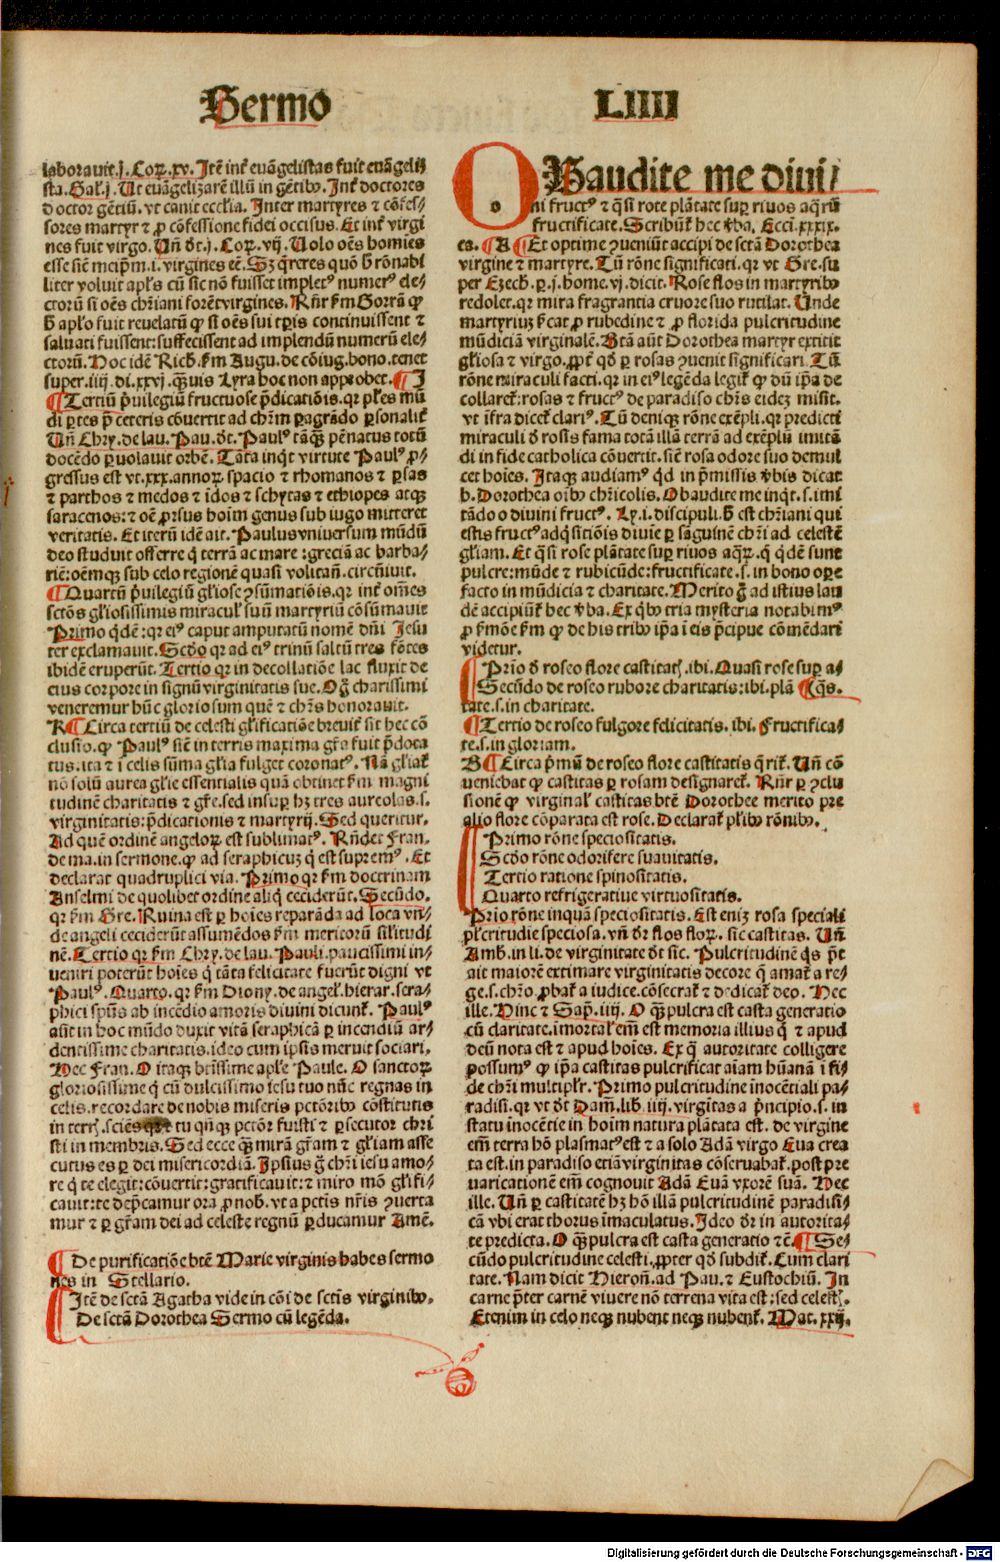 Sermo LIIII
laborauit.j. Coꝝ.xv. Itē int̄ euāgelistas fuit euāgeli⸗
sta. Gal̄.j. Ut euāgelizarē illū in gētibꝰ. Int̄ doctores
doctor gētiū. vt canit eccl̄ia. Inter martyres ⁊ cōfes⸗
sores martyr ⁊ ꝓ cōfessione fidei occisus. Et int̄ virgi
nes fuit virgo. Un̄ dt̄.j. Coꝝ. vij. Uolo oēs homies
esse siēi meip̄m.i. virgines eē. Sꝫ q̄reres quō h̄ rōnabi
liter voluit apl̄s cū sic nō fuisset impletꝰ numerꝰ ele⸗
ctorū si oēs chr̄iani forēt virgines. Rn̄r ẜm Gorrā ꝙ
h̄ apl̄o fuit reuelatū ꝙ si oēs sui tp̄is continuissent ⁊
saluati fuissent: suffecissent ad implendū numerū ele⸗
ctorū. Hoc idē Rich. ẜm Augu. de cōiug. bono. tenet
super.iiij.di.xxvj. qꝫuis Lyra hoc non approbet. ¶ I
¶ Tertiū p̄uilegiū fructuose p̄dicatiōis. qr pl̄es mū
di ꝑtes p̄ ceteris cōuertit ad chr̄m ꝑagrādo ꝑsonalit̄
Un̄ Chry. de lau. Pau. dt̄. Paulꝰ tāqꝫ pēnatus totū
docēdo ꝑuolauit orbē. Tāta inq̄t virtute Paulꝰ ꝓ⸗
gressus est vt.xxx.annoꝝ spacio ⁊ rhomanos ⁊ ꝑsas
⁊ parthos ⁊ medos ⁊ īdos ⁊ schytas ⁊ ethiopes atqꝫ
saracenos: ⁊ oē ꝓrsus hoīm genus sub iugo mitteret
veritatis. Et iterū idē ait. Paulus vniuersum mūdū
deo studuit offerre q̄ terrā ac mare: greciā ac barba⸗
riē: oēmqꝫ sub celo regionē quasi volitan̄. circūiuit.
¶ Quartū p̄uilegiū gl̄iose ꝯsūmatiōis. qr int̄ om̄es
sctōs gl̄iosissimis miracul̄ suū martyriū cōsūmauit
Primo q̄dē: qr eiꝰ caput amputatū nomē dn̄i Jesu
ter exclamauit. Scd̄o qr ad eiꝰ trinū saltū tres fōtes
ibidē eruperūt. Tertio qr in decollatiōe lac fluxit de
eius corpore in signū virginitatis sue. O g̊ charissimi
veneremur hūc gloriosum quē ⁊ chr̄s honorauit.
K ¶ Circa tertiū de celesti gl̄ificatiōe breuit̄ sit hec cō
clusio. ꝙ Paulꝰ siēi in terris maxima gr̄a fuit p̄dota
tus. ita ⁊ ī celis sūma gl̄ia fulget coronatꝰ. Nā gl̄iat̄
nō solū aurea gl̄ie essentialis quā obtinet ẜm magni
tudinē charitatis ⁊ gr̄e. sed insuꝑ hꝫ tres aureolas.s.
virginitatis: p̄dicationis ⁊ martyrij. Sed queritur.
Ad quē ordinē angeloꝝ est sublimatꝰ. Rn̄det Fran.
de ma. in sermone. ꝙ ad seraphicuꝫ q̄ est supremꝰ. Et
declarat quadruplici via. Primo qr ẜm doctrinam
Anselmi de quolibet ordine aliq̄ ceciderūt. Secūdo.
qr ẜm Gre. Ruina est ꝑ hoīes reparāda ad loca vn̄⸗
de angeli ceciderūt assumēdos ẜm mericorū sil̄itudi
nē. Tertio qr ẜm Chry. de lau. Pauli. paucissimi in⸗
ueniri poterūt hoīes q̄ tāta felicitate fuerūt digni vt
Paulꝰ. Quarto. qr ẜm Diony. de angel̄. hierar. sera⸗
phici spūs ab incēdio amoris diuini dicunt̄. Paulꝰ
aūt in hoc mūdo duxit vitā seraphicā ꝑ incendiū ar⸗
dentissime charitatis. ideo cum ipsis meruit sociari.
Hec Fran. O itaqꝫ btīssime apl̄e Paule. O sanctoꝝ
gloriosissime q̄ cū dulcissimo iesu tuo nūc regnas in
celis. recordare de nobis miseris pctōribꝰ cōstitutis
in terr̄. sciēs qr ⁊ tu qn̄qꝫ pctōr fuisti ⁊ ꝑsecutor chri
sti in membris. Sed ecce qꝫ mirā gr̄am ⁊ gl̄iam asse
cutus es ꝑ dei misericordiā. Ipsius g̊ chr̄i iesu amo⸗
re q̄ te elegit: cōuertit: gratificauit: ⁊ miro mō gl̄ifi⸗
cauit: te dep̄camur ora ꝓ nob. vt a pctīs nr̄is ꝯuerta
mur ⁊ ꝑ gr̄am dei ad celeste regnū ꝑducamur Amē.
¶ De purificatiōe btē Marie virginis habes sermo
nes in Stellario.
Itē de sctā Agatha vide in cōi de sctīs virginibꝰ.
De sctā Dorothea Sermo cū legēda.
OBaudite me diui⸗
ni fructꝰ ⁊ q̄si rote plātate suꝑ riuos aq̄rū
fructificate. Scribunt̄ hec v̄ba. Ecci.xxxix.
es. ¶ A ¶ Et optime ꝯueniūt accipi de sctā Dorothea
virgine ⁊ martyre. Tū rōne significati. qr vt Gre. su
per Ezech. ꝑ.j. home. vj. dicit. Rose flos in martyribꝰ
redolet. qr mira fragrantia cruore suo rutilat. Unde
martyriuꝫ ẜcat ꝓ rubedine ⁊ ꝓ florida pulcritudine
mūdiciā virginalē. Btā aūt Dorothea martyr extitit
gl̄iosa ⁊ virgo. ꝓpt̄ qd̄ ꝑ rosas ꝯuenit significari. Tū
rōne miraculi facti. qr in eiꝰ legēda legit̄ ꝙ dū ip̄a de
collaret̄: rosas ⁊ fructꝰ de paradiso chr̄s eideꝫ misit.
vt īfra dicet̄ clariꝰ. Tū deniqꝫ rōne exēpli. qr predicti
miraculi d̄ rosis fama totā illā terrā ad exēplū imitā
di in fide catholica cōuertit. siēi rosa odore suo demul
cet hoīes. Itaqꝫ audiamꝰ qd̄ in p̄missis v̄bis dicat
b. Dorothea oībꝰ chr̄icolis. Obaudite me inq̄t.s. imi
tādo o diuini fructꝰ. Ly.i. discipuli. h̄ est chr̄iani qui
estis fructꝰ adq̄sitiōis diuīe ꝑ sanguinē chr̄i ad celestē
gl̄iam. Et q̄si rose plātate suꝑ riuos aq̄ꝝ. q̄ q̄dē sunt
pulcre: mūde ⁊ rubicūde: fructificate.s. in bono oꝑe
facto in mūdicia ⁊ charitate. Merito g̊ ad istius lau
dē accipiūt̄ hec v̄ba. Ex qbꝰ tria mysteria notabimꝰ
ꝓ ẜmōe ẜm ꝙ de his tribꝰ ip̄a ī eis p̄cipue cōmēdari
videtur.
¶ Prīo d̄ roseo flore castitatꝭ. ibi. Quasi rose suꝑ a⸗
Secūdo de roseo rubore charitatis: ibi. plā ¶ q̄s.
tate.s. in charitate.
¶ Tertio de roseo fulgore felicitatis. ibi. Fructifica⸗
te.s. in gloriam.
B ¶ Circa p̄mū de roseo flore castitatis q̄rit̄. Un̄ cō
ueniebat ꝙ castitas ꝑ rosam designaret̄. Rn̄r ꝑ ꝯclu
sionē ꝙ virginal̄ castitas btē Dorothee merito pre
alio flore cōparata est rose. Declarat̄ pl̄ibꝰ rōnibꝰ.
Primo rōne speciositatis.
Scd̄o rōne odorifere suauitatis.
Tertio ratione spinositatis.
Quarto refrigeratiue virtuositatis.
Prīo rōne inquā speciositatis. Est eniꝫ rosa speciali
pl̄critudīe speciosa. vn̄ dr̄ flos floꝝ. sic castitas. Un̄
Amb. in li. de virginitate dt̄ sic. Pulcritudinē q̄s pt̄
ait maiorē extimare virginitatis decore q̄ amat̄ a re⸗
ge.s. chr̄o. ꝓbat̄ a iudice. cōsecrat̄ ⁊ dedicat̄ deo. Hec
ille. Hinc ⁊ Sap̄. iiij. O qꝫ pulcra est casta generatio
cū claritate. īmortal̄ em̄ est memoria illius q̄ ⁊ apud
deū nota est ⁊ apud hoīes. Ex q̄ autoritate colligere
possumꝰ ꝙ ip̄a castitas pulcrificat aīam hūanā ī fi⸗
de chr̄i multipl̄r. Primo pulcritudine inocētiali pa⸗
radisi. qr vt dt̄ Dam̄. lib. iiij. virgītas a p̄ncipio.s. in
statu īnocētie in hoīm natura plātata est. de virgine
em̄ terra hō plasmatꝰ est ⁊ a solo Adā virgo Eua crea
ta est. in paradiso etiā virginitas cōseruabat̄. post pre
uaricationē em̄ cognouit Adā Euā vxorē suā. Hec
ille. Un̄ ꝑ castitatē hꝫ hō illā pulcritudinē paradisi⸗
cā vbi erat thorus īmaculatus. Ideo dr̄ in autorita⸗
te predicta. O qꝫ pulcra est casta generatio ⁊cē. ¶ Se⸗
cūdo pulcritudine celesti. ꝓpter qd̄ subdit̄. Cum clari
tate. Nam dicit Hieron̄. ad Pau. ⁊ Eustochiū. In
carne p̄ter carnē viuere nō terrena vita est: sed celestꝭ.
Etenim in celo neqꝫ nubent neqꝫ nubent̄. Mat. xxij.
Digitalisierung gefördert durch die Deutsche Forschungsgemeinschaft - DFG